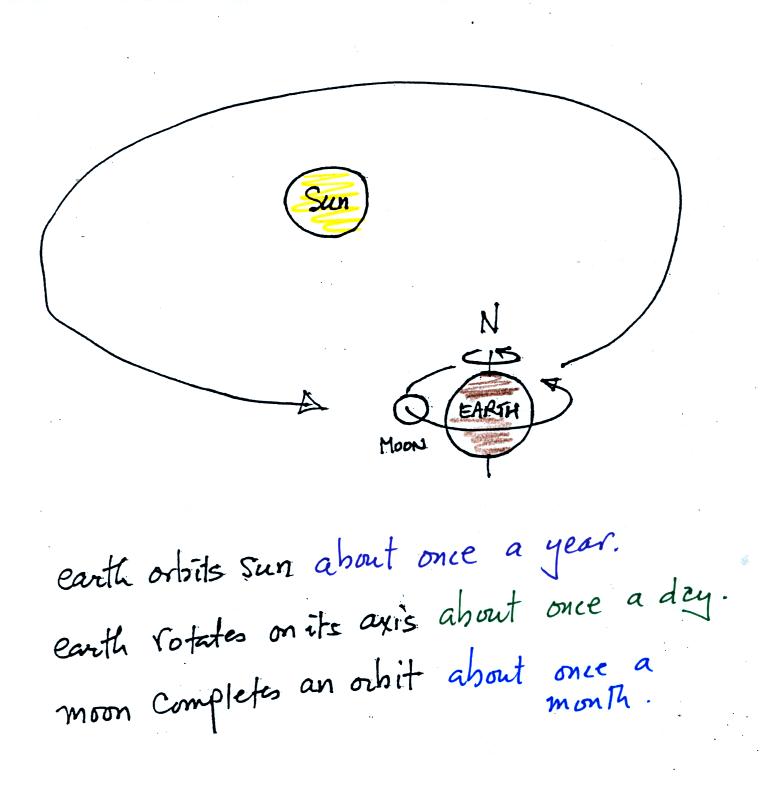 Sun
N
EARTH
MOON
earth orbits sun about once a year.
earth rotates on its axis about once a day.
moon completes an orbit about once a
month.